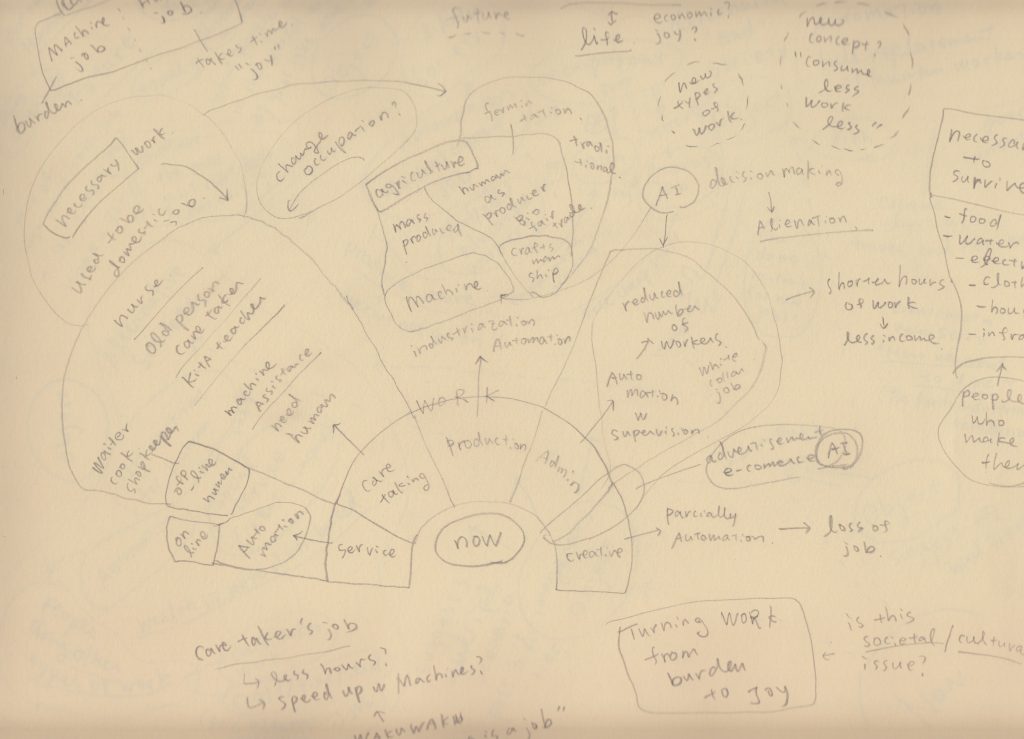 Machine :
job
job
takes time
"joy"
burden.
future
life
economic?
joy?
new
concept?
"consume
less
work
less"
new
types
of
work
necessary work
used to be
domestic
job.
change
occupation?
fermin
tation
tradi
tional
agriculture
mass
produced
human
as
producer
Bio
fair
trade
crafts
man
ship
Machine
industriazation
Automation
AI
decision making
Alienation
necessa
to
survive
- food
- water
- elect
- clot
- hou
- infra
people
who
make
them
shorter hours
of work
less income
reduced
number
of
workers
white
collar
job
Auto
mation
w
supervision
nurse
old person
care taker
KitA teacher
machine
Assistance
need
human
waiter
cook
shopkeeper
off
-line
human
on
line
Auto
mation
WORK
service
care
taking
production
Admin
creative
now
advertisement
e-comerce
AI
parcially
Automation
loss of
job.
care taker's job
↳ less hours?
↳ speed up w Machines?
WAKUWAKU
is a job"
Turning WORK
from
burden
to Joy
is this
societal / cultura
issue?